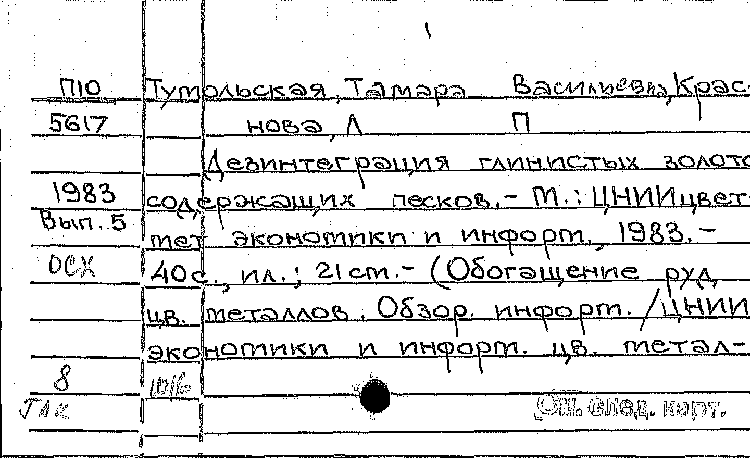 П10 Тумольская, Тамара Васильевна, Крас-
5617 нова, Л П
Дезинтеграция глинистых золото
1983 содержащих песков. - М.: ЦНИИцвет-
Вып. 5 мет экономики и информ., 1983. -
ОСХ 40с., ил.; 21 см. - (Обогащение руд
цв. металлов. Обзор. информ. / ЦНИИ
экономики и информ. цв. метал-
8
См. след. карт.